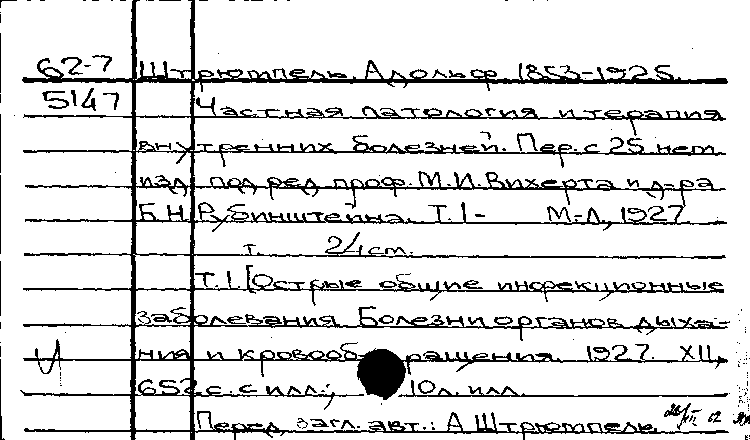 62-7 Штрюмпель, Адольф 1853-1925.
5147 Частная патология и терапия
внутренних болезней. Пер. с 25 нем.
изд. под ред. проф. М.И. Вихерта и д-ра
Б.Н. Рубинштейна. Т. 1- М-Л, 1927
т. 24 cm.
Т. 1. [Острые общие инфекционные
заболевания. Болезни органов дыха-
ния и кровообращения. 1927. XII,
652 с. с илл.; 10 л. илл.
Перед загл. авт.: А. Штрюмпель.